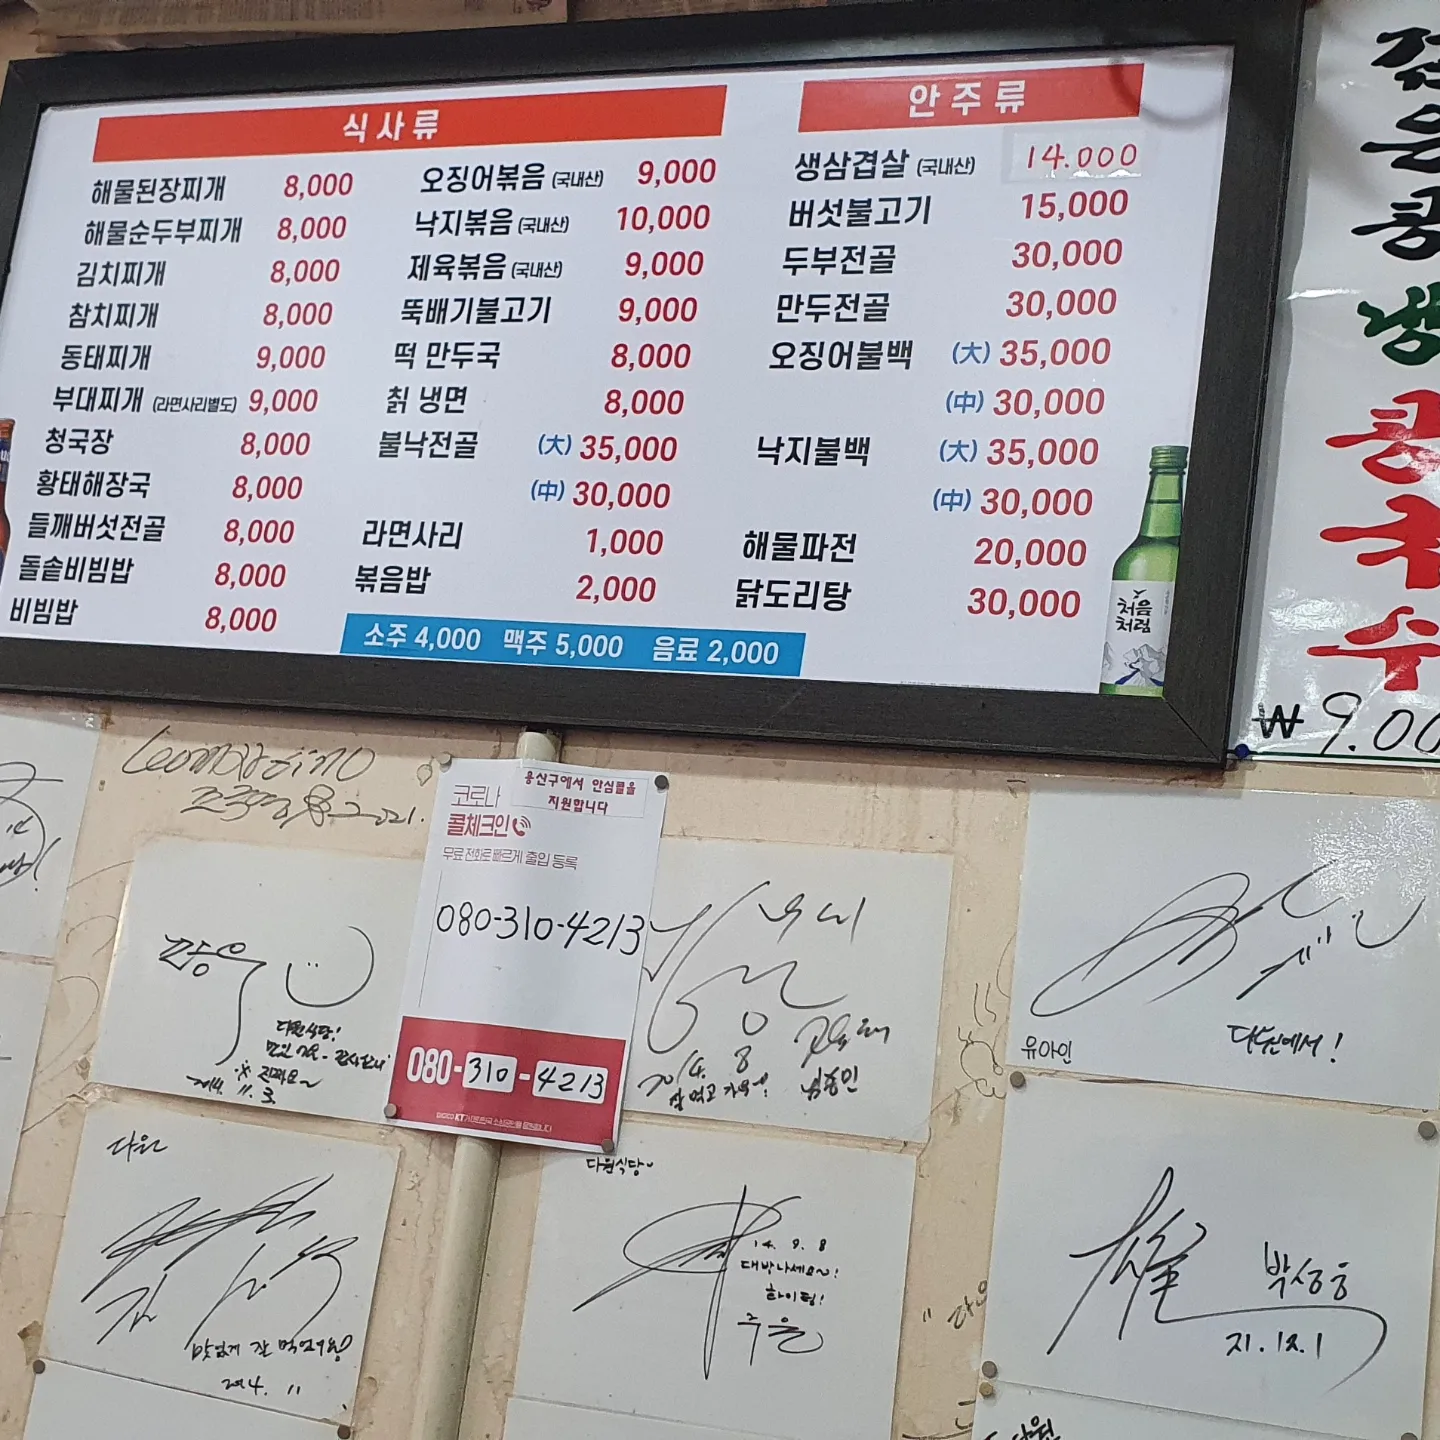 식사류
해물된장찌개 8,000
해물순두부찌개 8,000
김치찌개 8,000
참치찌개 8,000
동태찌개 9,000
부대찌개 (라면사리별도) 9,000
청국장 8,000
황태해장국 8,000
들깨버섯전골 8,000
돌솥비빔밥 8,000
비빔밥 8,000
오징어볶음 (국내산) 9,000
낙지볶음 (국내산) 10,000
제육볶음 (국내산) 9,000
뚝배기불고기 9,000
떡 만두국 8,000
칡 냉면 8,000
불낙전골 (大) 35,000
(中) 30,000
라면사리 1,000
볶음밥 2,000
안주류
생삼겹살 (국내산) 14.000
버섯불고기 15,000
두부전골 30,000
만두전골 30,000
오징어불백 (大) 35,000
(中) 30,000
낙지불백 (大) 35,000
(中) 30,000
해물파전 20,000
닭도리탕 30,000
소주 4,000 맥주 5,000 음료 2,000
처음
처럼
검은콩냉콩국수
₩9.00
2021.
용산구에서 안심콜을
지원합니다
코로나
콜체크인
무료 전화로 빠르게 출입 등록
080-310-4213
080-310-4213
다원식당!
2014. 11. 3
2014. 8
잘 먹고 가요!
유아인
다원에서!
다원
맛있게 잘 먹었어용!
2014. 11
다원식당
14. 9. 8
대박나세요~!
화이팅!
주원
박성웅
21.12.1
다원